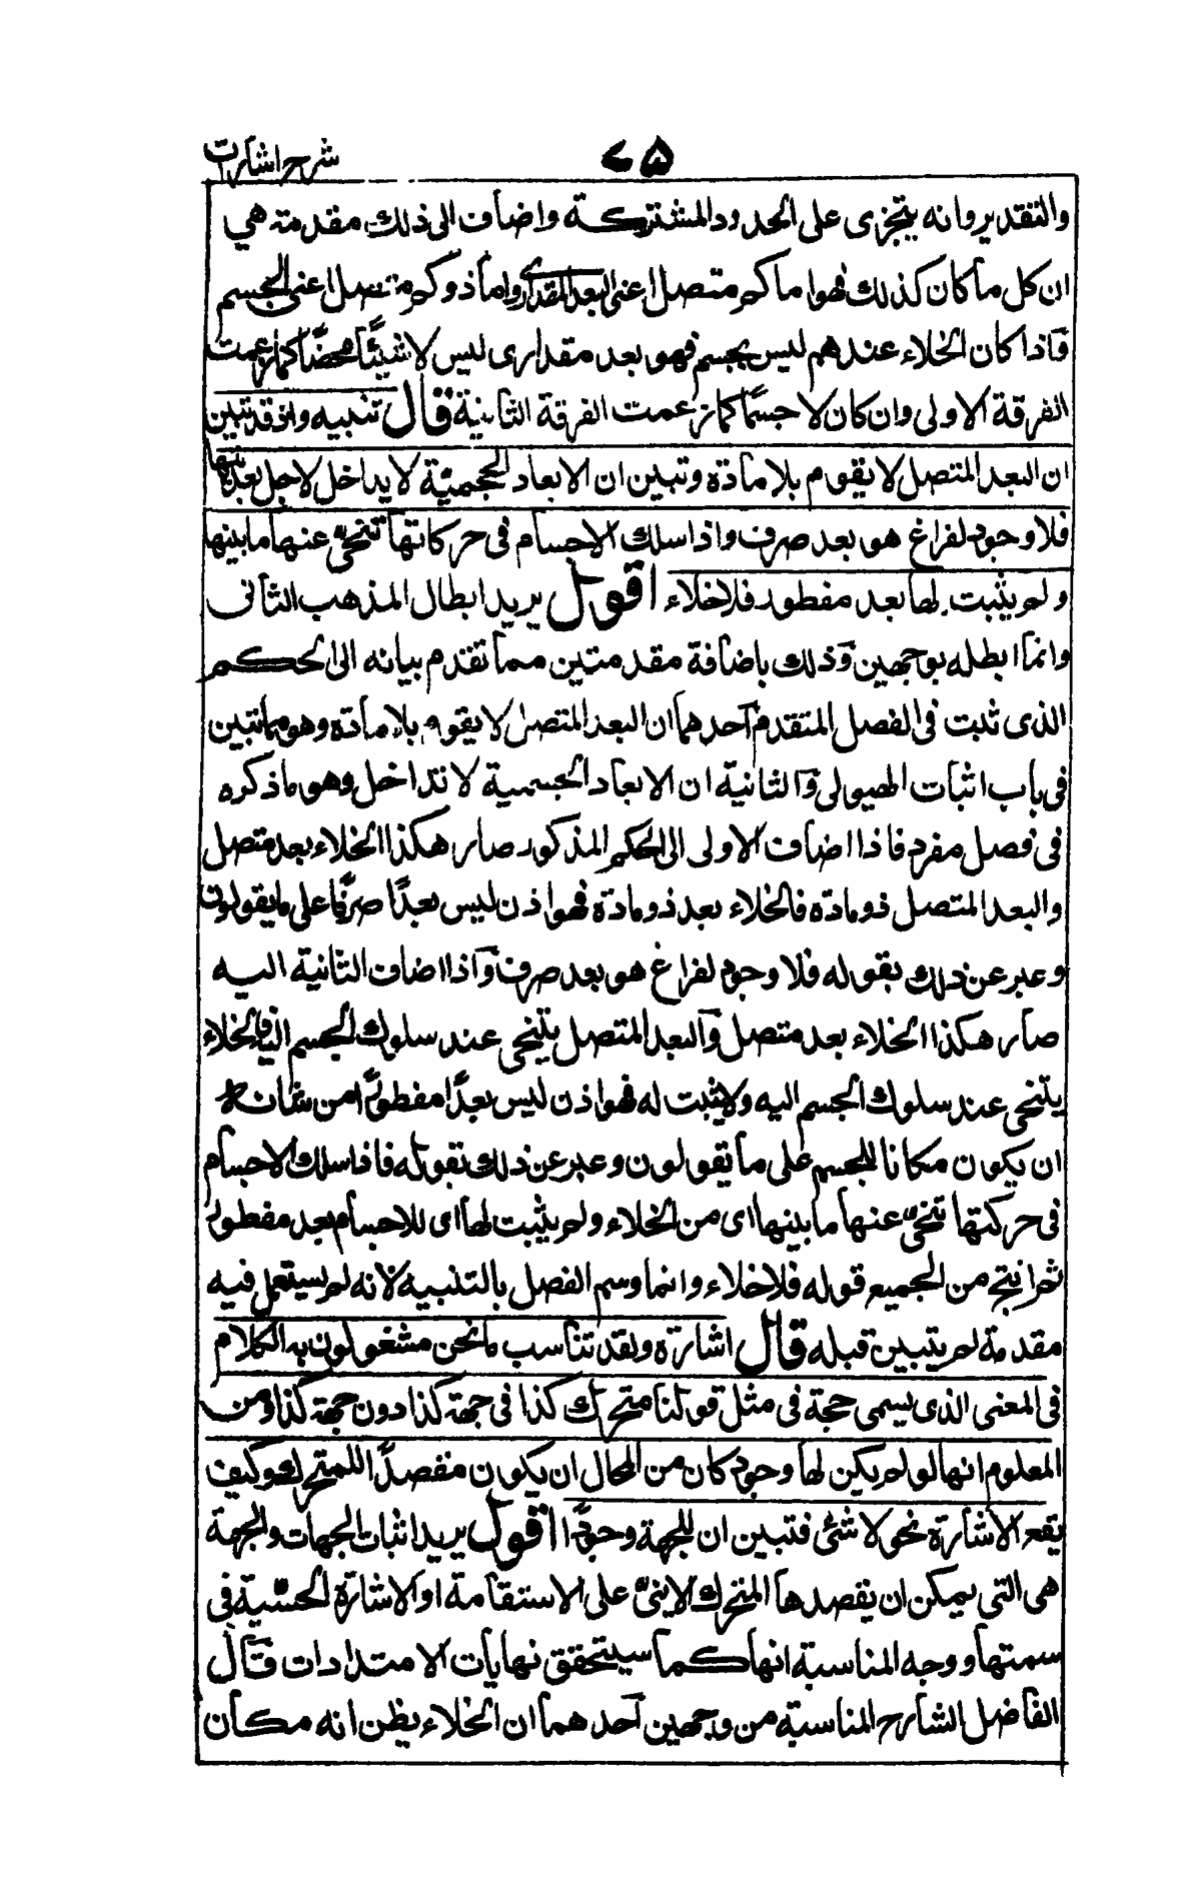 شرح اشارت
٧٥
والتقدير وانه يتجزى على الحدود المشتركة واضاف الى ذلك مقدمة هي
ان كل ما كان كذلك فهو اما كم متصل اعنى البعد المقدارى واما ذو كم متصل اعنى الجسم
فاذا كان الخلاء عندهم ليس بجسم فهو بعد مقدارى ليس لا شيئًا محضًا كما زعمت
الفرقة الاولى وان كان لا جسمًا كما زعمت الفرقة الثانية قال تنبيه واذ قد تبين
ان البعد المتصل لا يقوم بلا مادة وتبين ان الابعاد الحجمية لا يداخل لاجل بعديتها
فلا وجود لفراغ هو بعد صرف واذا سلك الاجسام فى حركاتها تنحىّ عنها ما بينها
ولم يثبت لها بعد مفطور فلا خلاء اقول يريد ابطال المذهب الثانى
وانما ابطله بوجهين وذلك باضافة مقدمتين مما تقدم بيانه الى الحكم
الذى ثبت فى الفصل المتقدم احدهما ان البعد المتصل لا يقوم بلا مادة وهو مما تبين
فى باب اثبات الهيولى والثانية ان الابعاد الجسمية لا تتداخل وهو ما ذكره
فى فصل مفرد فاذا اضاف الاولى الى الحكم المذكور صار هكذا الخلاء بعد متصل
والبعد المتصل ذو مادة فالخلاء بعد ذو مادة فهو اذن ليس بعدًا صرفًا على ما يقولون
وعبر عن ذلك بقوله فلا وجود لفراغ هو بعد صرف واذا اضاف الثانية اليه
صار هكذا الخلاء بعد متصل والبعد المتصل يتنحى عند سلوك الجسم اليه فالخلاء
يتنحى عند سلوك الجسم اليه ولا يثبت له فهو اذن ليس بعدًا مفطورًا من شانه
ان يكون مكانا للجسم على ما يقولون وعبر عن ذلك بقوله فاذا سلك الاجسام
فى حركتها تنحىّ عنها ما بينها اى من الخلاء ولم يثبت لها اى للاجسام بعد مفطور
ثم انتج من الجميع قوله فلا خلاء وانما وسم الفصل بالتنبيه لانه لم يستعمل فيه
مقدمة لم يتبين قبله قال اشارة ولقد تناسب ما نحن مشغولون به الكلام
فى المعنى الذى يسمى جهة فى مثل قولنا متحرك كذا فى جهة كذا دون جهة كذا ومن
المعلوم انها لو لم يكن لها وجود كان من المحال ان يكون مقصدًا للمتحرك وكيف
يقع الاشارة نحو لا شئ فتبين ان للجهة وجودًا اقول يريد اثبات الجهات والجهة
هى التى يمكن ان يقصدها المتحرك الاينىّ على الاستقامة او الاشارة الحسّية فى
سمتها ووجه المناسبة انها كما سيتحقق نهايات الامتدادات قال
الفاضل الشارح المناسبة من وجهين احدهما ان الخلاء يظن انه مكان